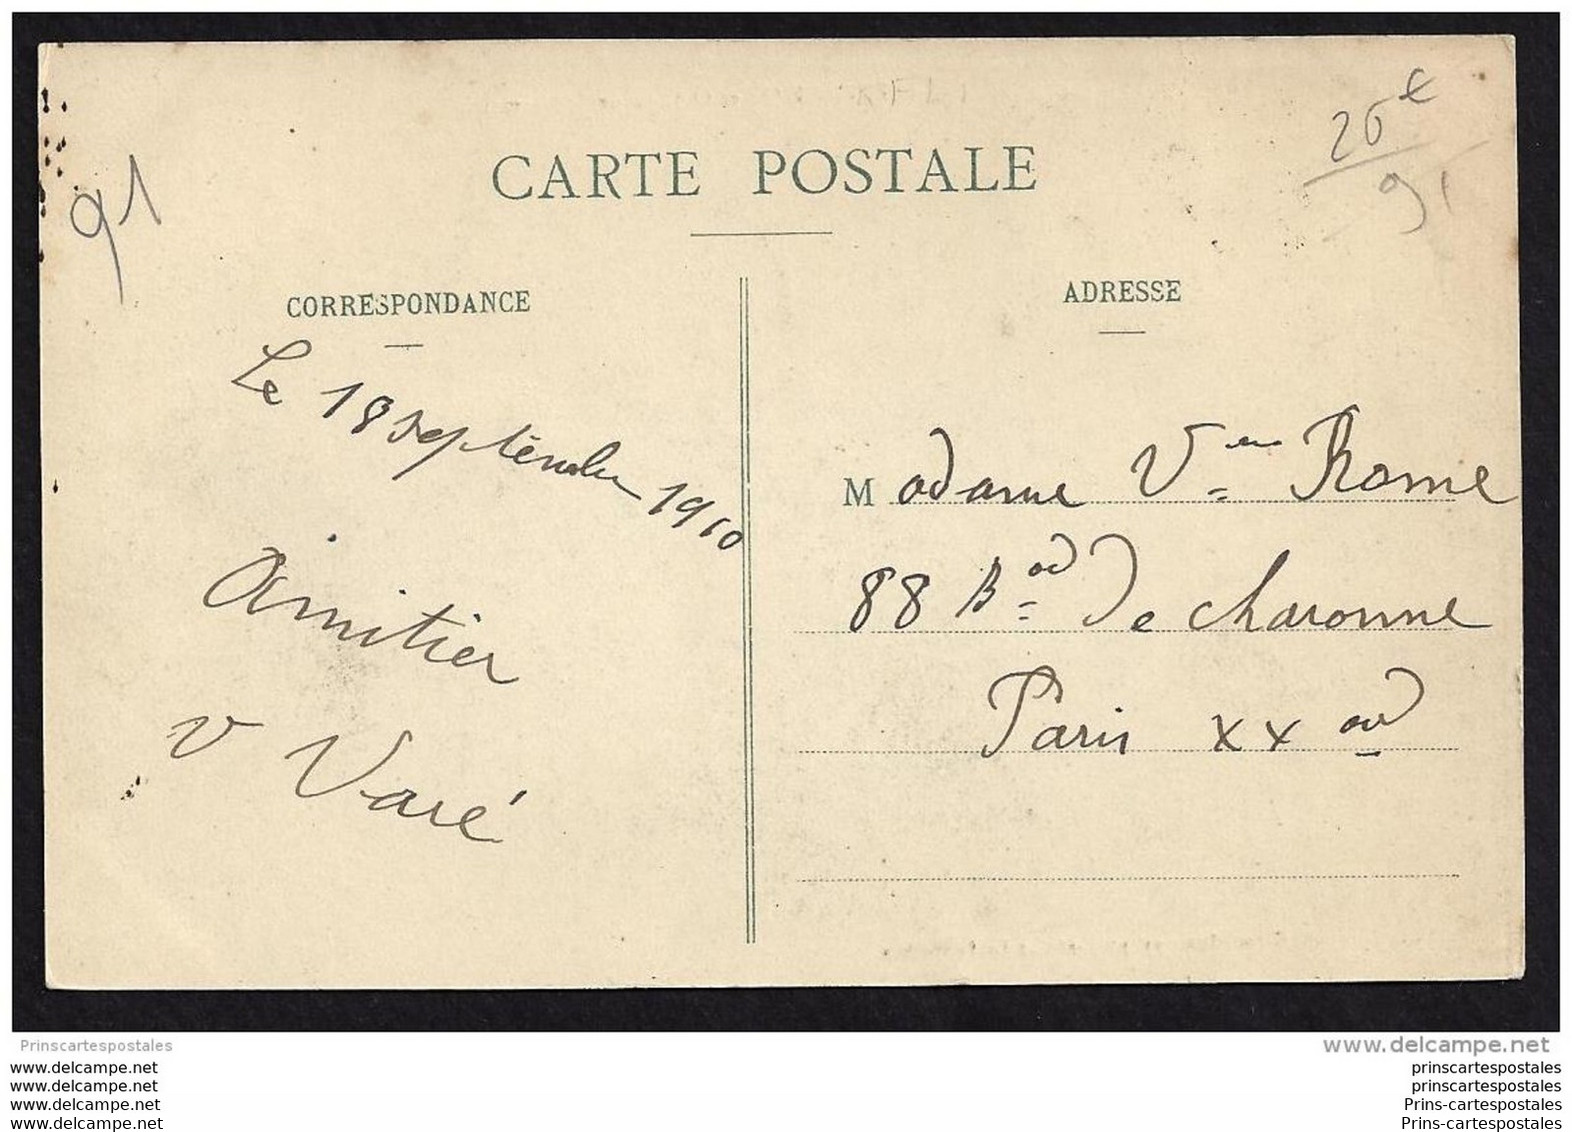 CARTE POSTALE
91
26 €
91
CORRESPONDANCE
Le 18 septembre 1910
Amitier
V Varé
ADRESSE
Madame Vve Rome
88 Bod de charonne
Paris XX
Prinscartespostales
www.delcampe.net
www.delcampe.net
www.delcampe.net
www.delcampe.net
www.delcampe.net
prinscartespostales
prinscartespostales
Prins-cartespostales
Prins-cartespostales